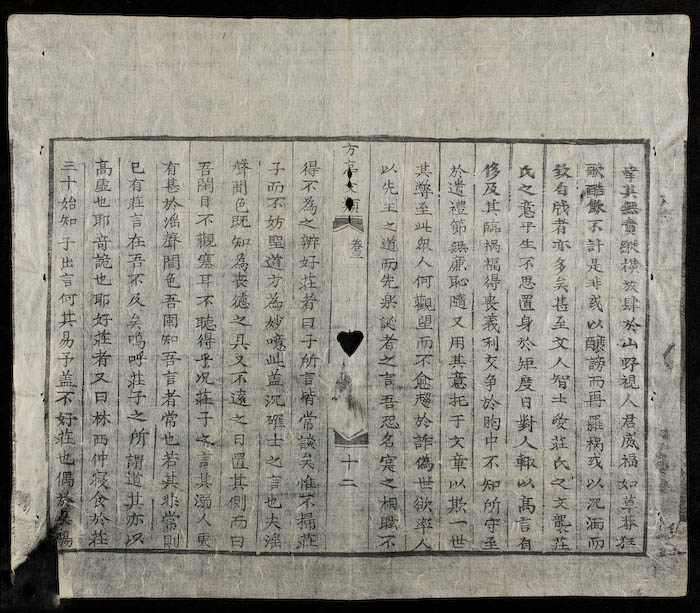 幸其無責縱橫放肆於山野視人君威福如草莽狂
歌酣飲不計是非或以醸謗而再羅禍或以沉湎而
致自戕者亦多矣甚至文人智士愛莊氏之文襲莊
氏之意平生不思置身於矩度日對人輒以高言有
修及其臨禍福得喪義利交爭於胸中不知所守至
於遺禮節無廉恥隨又用其意托于文章以欺一世
其弊至此吳人何觀望而不愈趨於詐偽世欲率人
以先王之道而先樂誕者之言吾忍名實之相戰不
方亭文
卷三
十二
得不為之辨好莊者曰子所言皆常談矣惟不掃莊
子而不妨聖道方為妙噫此盖沉確士之言也夫淫
聲間色既知為喪德之具又不遠之日置其側而曰
吾閉目不觀塞耳不聽得乎况莊子之言其溺人更
有甚於淫聲間色吾固知吾言者常也若其非常則
已有莊言在吾不反矣嗚呼莊子之所謂道其亦以
高虛也耶奇詭也耶好莊者又曰林西仲寢食於莊
三十始知子出言何其易予盖不好莊也偶於